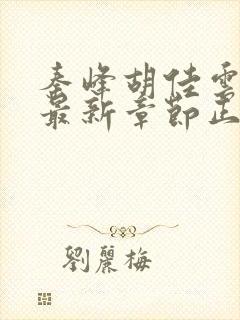 秦峰胡佳雲
最新章節正
劉麗梅